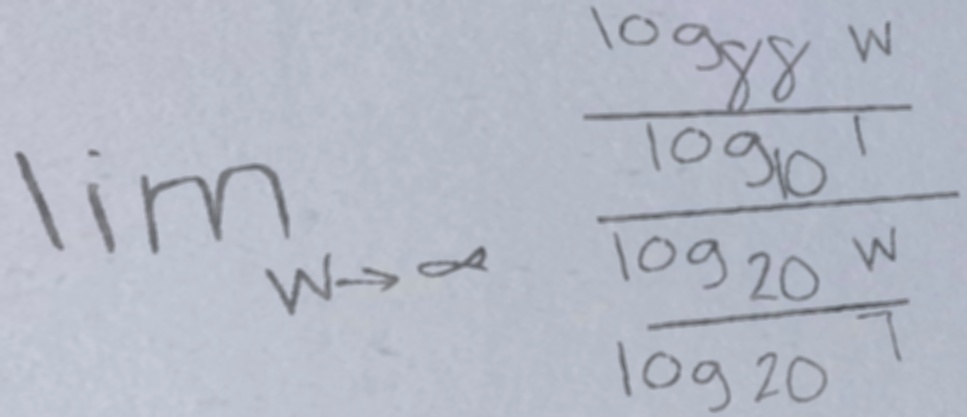 lim w→∞
log₈₈ w
log₁₀ 1
log₂₀ w
log 20 7